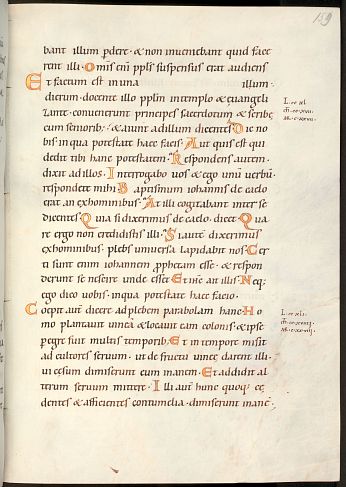 159
bant illum pdere · & non inueniebant quid face
rent illi · Omis eni ppls suspensus erat audiens
Et factum est in una illum ·
dierum · docente illo pplm in templo & euangeli
zante · conuenerunt principes sacerdotum & scribę
cum seniorib; · & aiunt ad illum dicentes Dic no
bis in qua potestate hęc facis · Aut quis est qui
dedit tibi hanc potestatem · Respondens autem ·
dixit ad illos · Interrogabo uos & ego unu uerbu
respondete mihi · Baptismum iohannis de cælo
erat an ex hominibus · At illi cogitabant inter se
dicentes · Quia si dixerimus de cælo · dicet · Qua
re ergo non credidistis illi · Si aute dixerimus
ex hominibus · plebs uniuersa lapidabit nos · Cer
ti sunt enim iohannem pphetam esse · & respon
derunt se nescire unde esset · Et ihc ait illis · Neq;
ego dico uobis · in qua potestate hęc facio ·
Coepit aut dicere ad plebem parabolam hanc · Ho
mo plantauit uineā & locauit eam colonis · & ipse
pegre fuit multis temporib; · Et in tempore misit
ad cultores seruum · ut de fructu uineę darent illi ·
ui cęsum dimiserunt eum inanem · Et addidit al
terum seruum mittere · Illi aut hunc quoq; cę
dentes & afficientes contumelia · dimiserunt inane ·